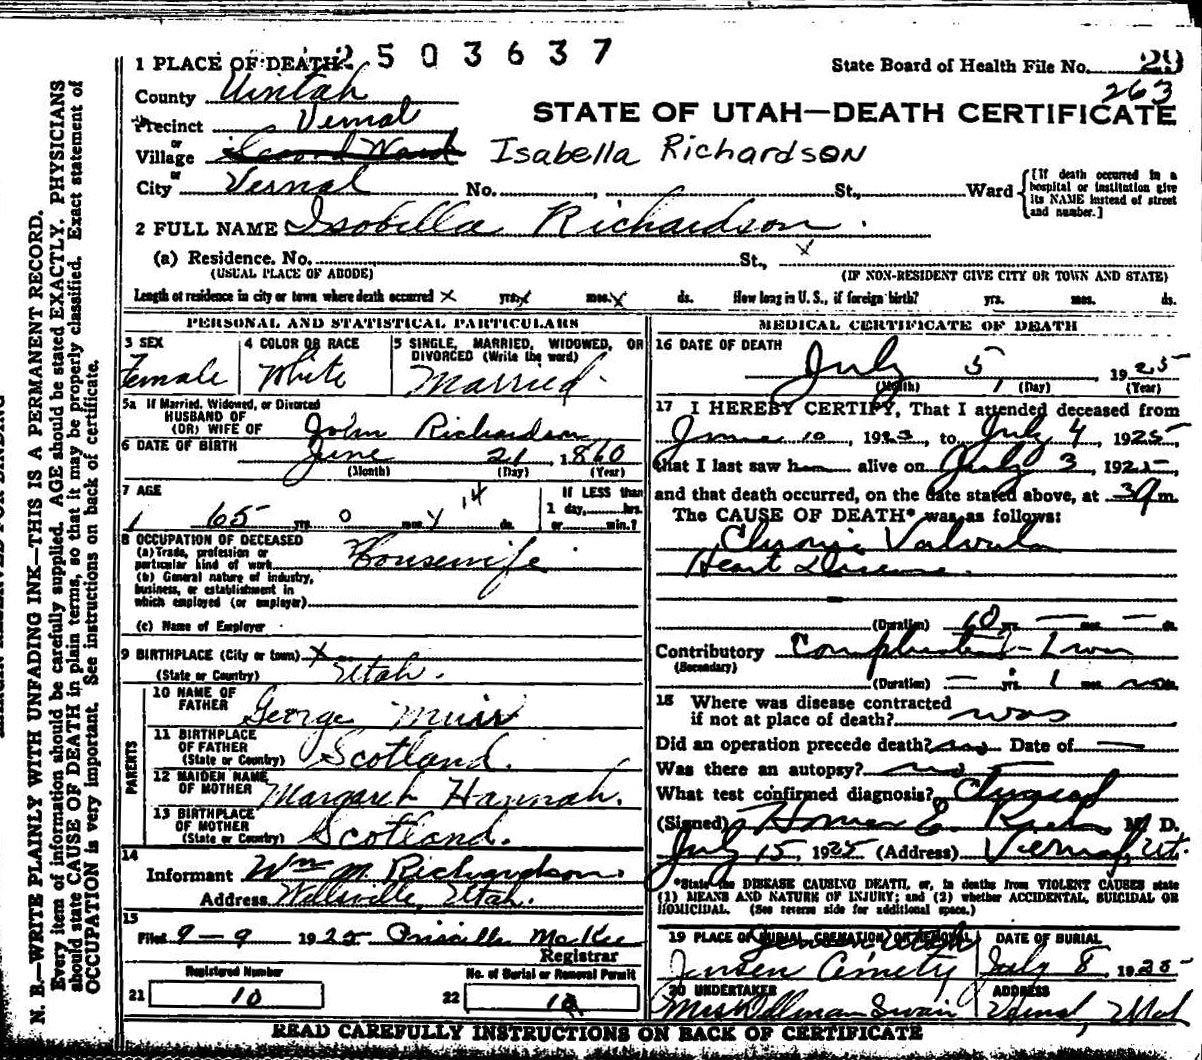 2503637
1 PLACE OF DEATH
State Board of Health File No. 29
263
County Uintah
STATE OF UTAH—DEATH CERTIFICATE
Precinct Vernal
or
Village Second Ward Isabella Richardson
or
City Vernal No. , St., Ward
[If death occurred in a hospital or institution give its NAME instead of street and number.]
2 FULL NAME Isobella Richardson.
(a) Residence. No. St., x
(USUAL PLACE OF ABODE) (IF NON-RESIDENT GIVE CITY OR TOWN AND STATE)
Length of residence in city or town where death occurred x yrs. x mos. x ds. How long in U. S., if foreign birth? yrs. mos. ds.
PERSONAL AND STATISTICAL PARTICULARS
3 SEX
Female
4 COLOR OR RACE
White
5 SINGLE, MARRIED, WIDOWED, OR DIVORCED (Write the word)
Married.
5a If Married, Widowed, or Divorced
HUSBAND OF
(OR) WIFE OF John Richardson
6 DATE OF BIRTH June 21 1860
(Month) (Day) (Year)
7 AGE
65 yrs. 0 mos. 14 ds.
If LESS than
1 day, hrs.
or min.?
8 OCCUPATION OF DECEASED
(a) Trade, profession or
particular kind of work Housewife
(b) General nature of industry,
business, or establishment in
which employed (or employer)
(c) Name of Employer
9 BIRTHPLACE (City or town) x
(State or Country) Utah.
PARENTS
10 NAME OF
FATHER George Muir
11 BIRTHPLACE
OF FATHER
(State or Country) Scotland.
12 MAIDEN NAME
OF MOTHER Margaret Hannah.
13 BIRTHPLACE
OF MOTHER
(State or Country) Scotland.
14
Informant Wm M. Richardson.
Address Wellsville, Utah.
15
Filed 9-9 1925 Priscilla McKee
Registrar
Registered Number
21 10
No. of Burial or Removal Permit
22
MEDICAL CERTIFICATE OF DEATH
16 DATE OF DEATH
July 5, 1925
(Month) (Day) (Year)
17 I HEREBY CERTIFY, That I attended deceased from
June 10, 1923, to July 4, 1925,
that I last saw her alive on July 3, 1925,
and that death occurred, on the date stated above, at m.
The CAUSE OF DEATH* was as follows:
Chronic Valvula
Heart Disease.
(Duration) 10 yrs. — mos. — ds.
Contributory
(Secondary)
(Duration) — yrs. 1 mos.
18 Where was disease contracted
if not at place of death? was
Did an operation precede death? no Date of —
Was there an autopsy? no
What test confirmed diagnosis? Clinical
(Signed) Homer E. M. D.
July 15, 1925 (Address) Vernal, Ut.
*State the DISEASE CAUSING DEATH, or, in deaths from VIOLENT CAUSES state
(1) MEANS AND NATURE OF INJURY; and (2) whether ACCIDENTAL, SUICIDAL OR
HOMICIDAL. (See reverse side for additional space.)
19 PLACE OF BURIAL CREMATION OR REMOVAL
Jensen Cimety
DATE OF BURIAL
July 8, 1925
20 UNDERTAKER
Mrs Swain
ADDRESS
Vernal, Utah
READ CAREFULLY INSTRUCTIONS ON BACK OF CERTIFICATE
N. B.—WRITE PLAINLY WITH UNFADING INK—THIS IS A PERMANENT RECORD.
Every item of information should be carefully supplied. AGE should be stated EXACTLY. PHYSICIANS
should state CAUSE OF DEATH in plain terms, so that it may be properly classified. Exact statement of
OCCUPATION is very important. See instructions on back of certificate.